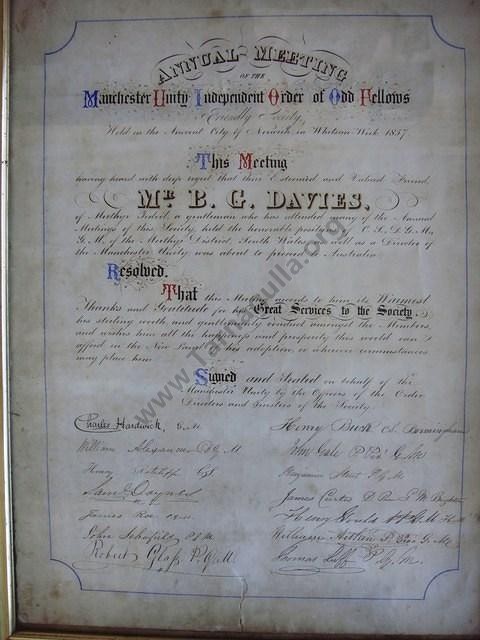 ANNUAL MEETING
OF THE
Manchester Unity Independent Order of Odd Fellows
Friendly Society,
Held in the Ancient City of Norwich in Whitsun-Week 1857
This Meeting
having heard with deep regret that their Esteemed and Valued Friend,
MR B. G. DAVIES,
of Merthyr Tydvil, a gentleman who has attended many of the Annual
Meetings of this Society, held the honorable position of C. S., D. G. M.,
G. M., of the Merthyr District, South Wales, as well as a Director of
the Manchester Unity was about to proceed to Australia
Resolved.
That this Meeting accords to him its Warmest
Thanks and Gratitude for his Great Services to the Society,
his sterling worth and gentlemanly conduct amongst the Members,
and wishes him all the happiness and prosperity this world can
afford in the New Land of his adoption, or wherever circumstances
may place him
Signed and Sealed on behalf of the
Manchester Unity by the Officers of the Order
Directors and Trustees of the Society.
Charles Hardwick, G. M.
Henry Buck C. S. Birmingham
William Alexander D G M
John Gale P Prov G. M.
Henry Ratcliffe C.S.
Benjamin Street P. G. M.
Saml Daynes
James Curtis D. R. P. G. M. Brighton
James Roe
Henry Gould
John Schofield P. G. M.
William Aitken P. Prov. G. M.
Robert Glass P. G. M.
Thomas Luff P. G. M.
www.Tarnagulla.org